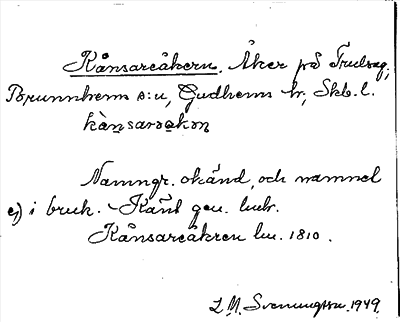 Kånsareåkern. Åker på Trulsag,
Brunnhems s:n, Gudhems hr, Skb. l.
kånsaråkɷn
Namngr. okänd, och namnet
ej i bruk. - Känt gen. lmtr.
Kånsareåkren lm. 1810.
L. M. Svenungsson. 1949.